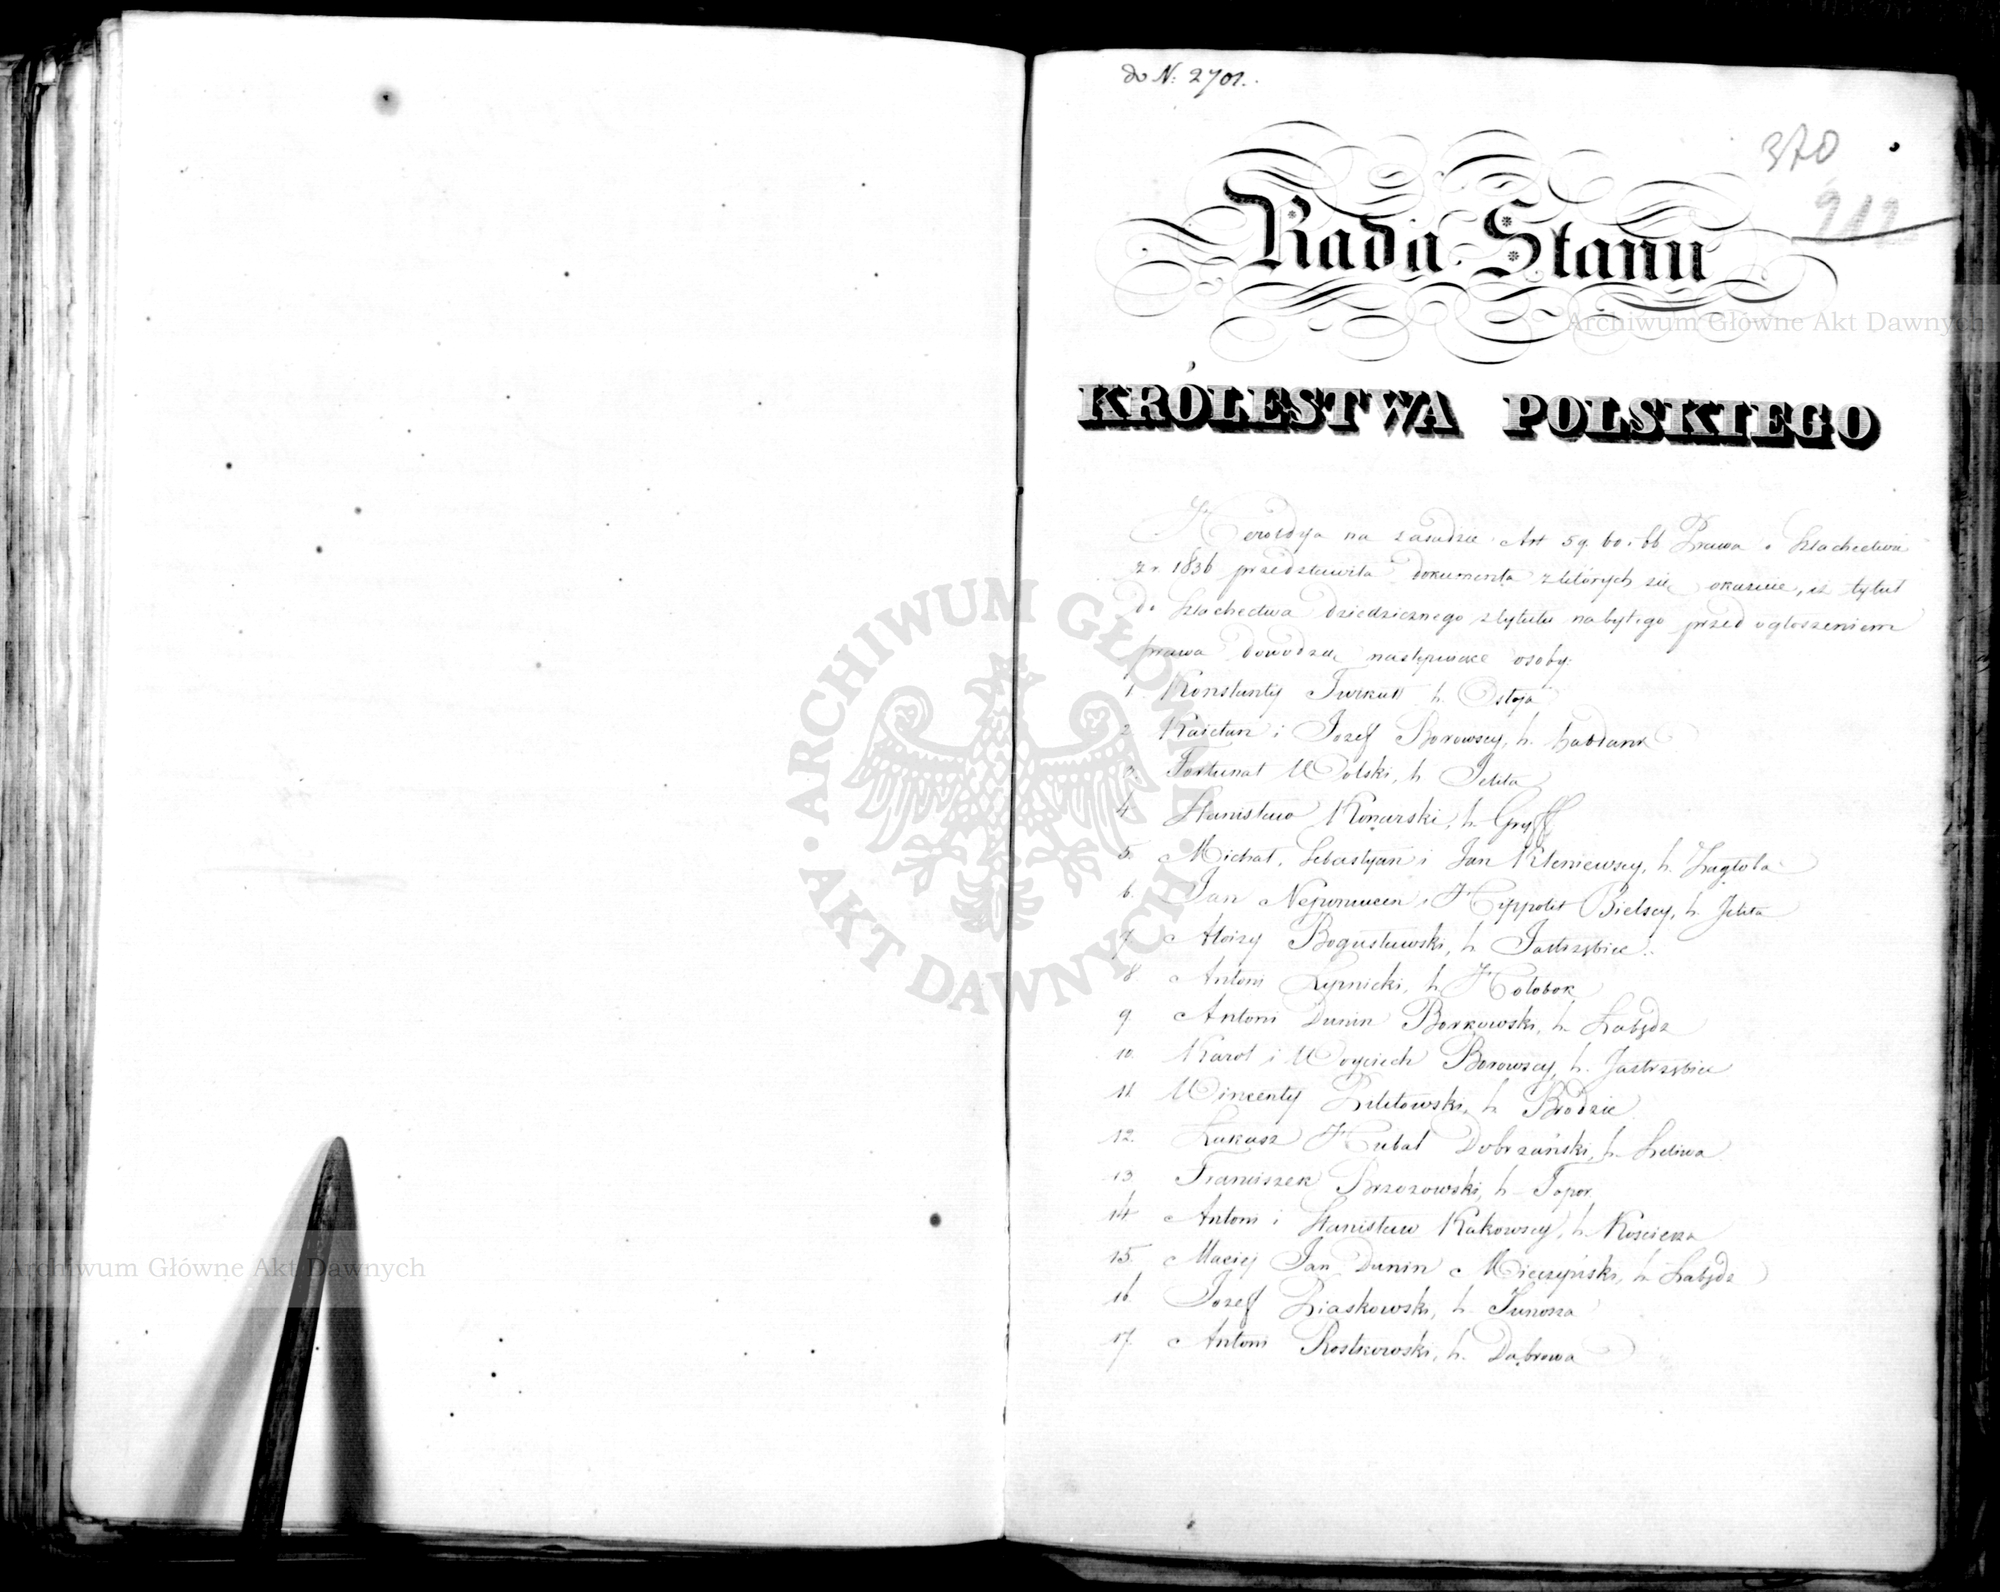 do N: 2701.
370
912
Rada Stanu
KRÓLESTWA POLSKIEGO
Heroldya na zasadzie Art 59. 60 i 66 Prawa o Szlachectwie
z r. 1836 przedstawiła dokumenta z których się okazuie, iż tytuł
do Szlachectwa dziedzicznego z tytułu nabytego przed ogłoszeniem
prawa dowodzą następuiące osoby:
1. Konstanty Twirkuł h. Ostoja
2. Kaietan i Jozef Borowscy, h. Łabdank
3. Fortunat Wolski, h Jelita
4. Stanisław Konarski, h. Gryff
5. Michał, Sebastyan i Jan Kleniewscy, h. Zagłoba
6. Jan Nepomucen i Hippolit Bielscy, h. Jelita
7. Aloizy Bogusławski, h Jastrzębiec.
8. Antoni Lipnicki, h Hołobok
9. Antoni Dunin Borkowski, h. Łabędz
10. Karol i Woyciech Borowscy, h. Jastrzębiec
11. Wincenty Zeletowski, h Brodzic
12. Łukasz Hubal Dobrzański, h Leliwa
13. Franciszek Brzozowski, h Topor
14. Antoni i Stanisław Kakowscy, h Kościesza
15. Maciej Jan Dunin Mieczyński, h Łabędz
16. Jozef Piaskowski, h. Junosza
17. Antoni Rostkowski, h. Dąbrowa
ARCHIWUM GŁÓWNE AKT DAWNYCH
Archiwum Główne Akt Dawnych
Archiwum Główne Akt Dawnych